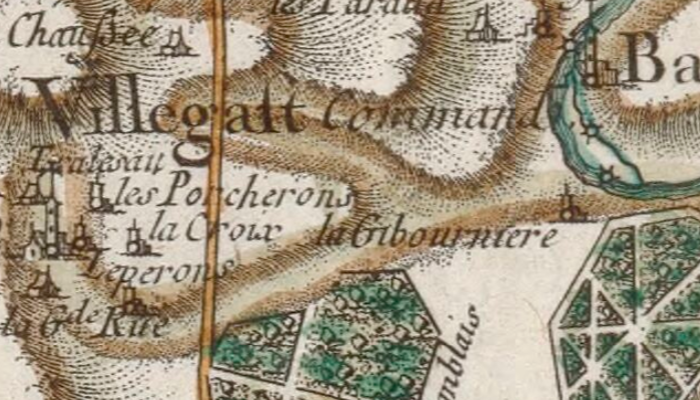 les
Chaussée
Ba
Villegatt Command
les Porcherons
la Croix la Gibourniere
Leperons
la Gde Rue
mblais